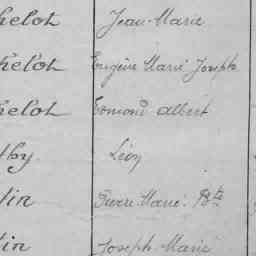 helot Jean-Marie
helot Eugène Marie Joseph
helot Edmond Albert
thy Léon
tin Pierre Marie Bte
tin Joseph Marie